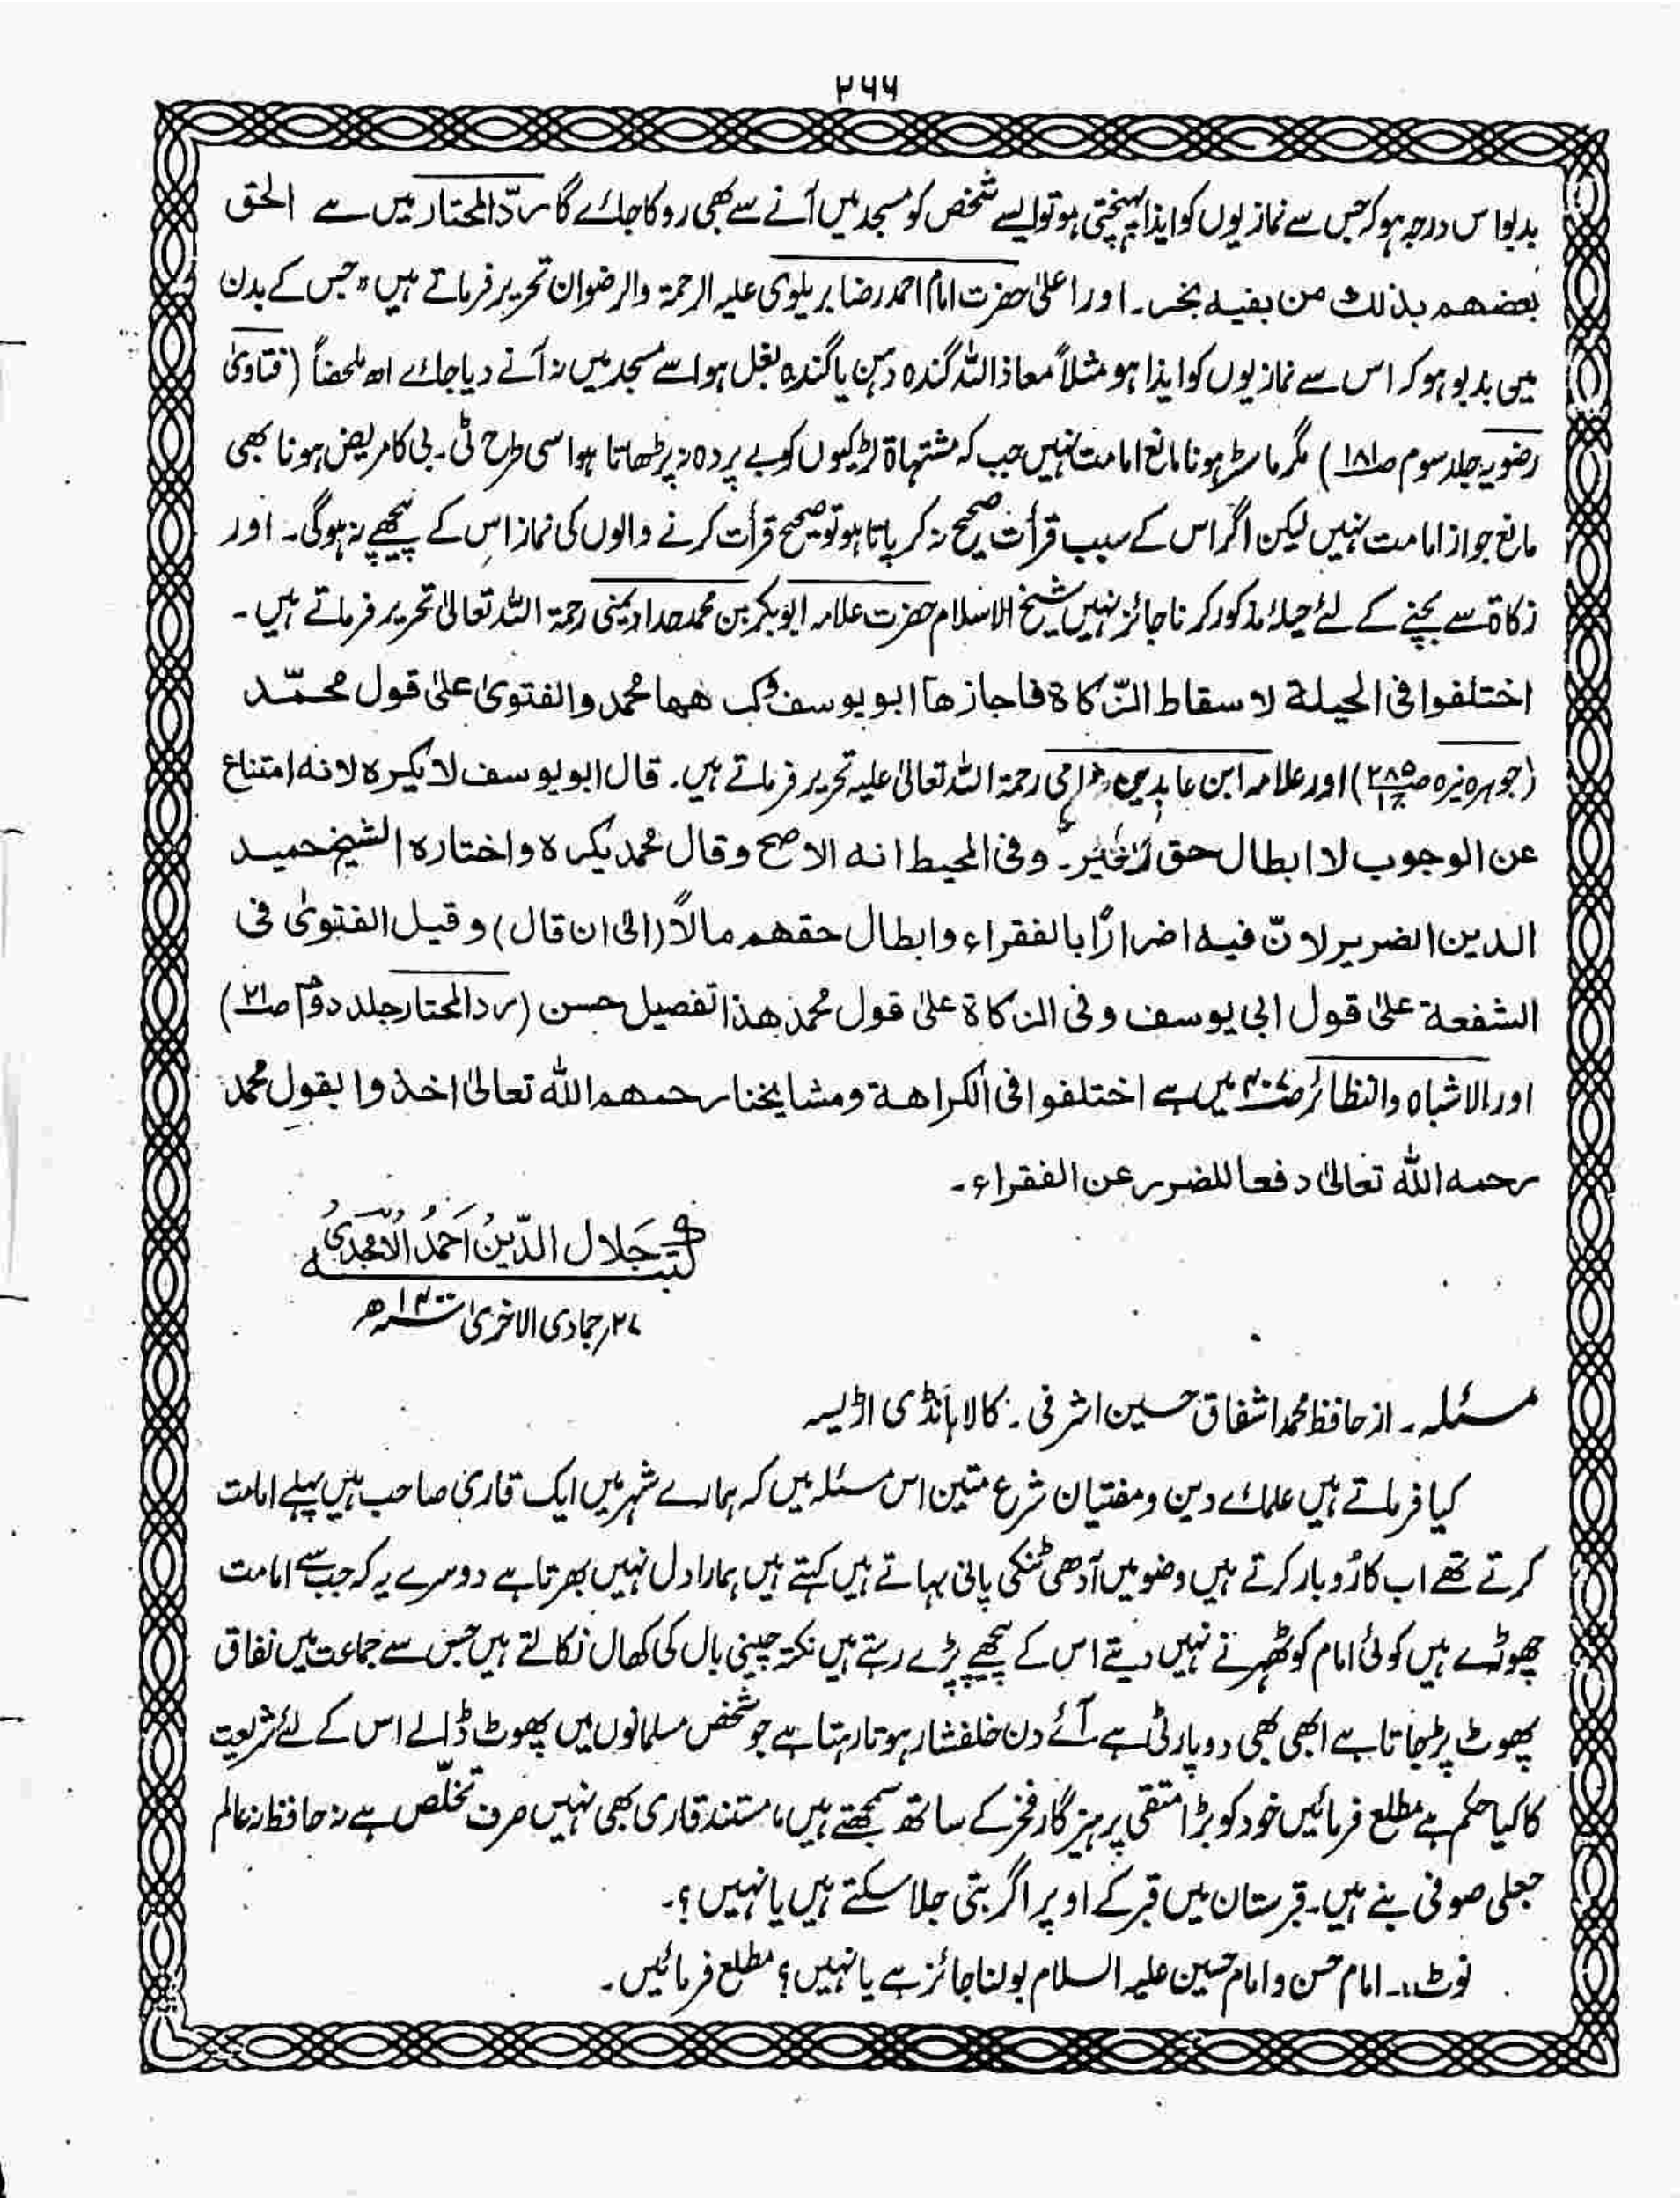 ۲۶۶
بدبو اس درجہ ہو کہ جس سے نمازیوں کو ایذا پہنچتی ہو تو ایسے شخص کو مسجد میں آنے سے بھی روکا جائے گا ردّ المحتار میں ہے الحق
بعضهم بذلك من بفيه بخر۔ اور اعلیٰ حضرت امام احمد رضا بریلوی علیہ الرحمۃ والرضوان تحریر فرماتے ہیں "جس کے بدن
میں بدبو ہو کہ اس سے نمازیوں کو ایذا ہو مثلاً معاذ اللہ گندہ دہن یا گندہ بغل ہو اسے مسجد میں نہ آنے دیا جائے اھ ملخصاً (فتاویٰ
رضویہ جلد سوم ص۱۸۱) مگر ماسٹر ہونا مانع امامت نہیں جب کہ مشتہاۃ لڑکیوں کو بے پردہ نہ پڑھاتا ہو اسی طرح ٹی۔بی کا مریض ہونا بھی
مانع جواز امامت نہیں لیکن اگر اس کے سبب قرأت صحیح نہ کر پاتا ہو تو صحیح قرأت کرنے والوں کی نماز اس کے پیچھے نہ ہوگی۔ اور
زکاۃ سے بچنے کے لئے حیلۂ مذکور کرنا جائز نہیں شیخ الاسلام حضرت علامہ ابوبکر بن محمد حداد یمنی رحمۃ اللہ تعالیٰ تحریر فرماتے ہیں۔
اختلفوا فی الحیلة لاسقاط الزّکاة فاجازها ابو یوسف وکرهها محمد والفتویٰ علیٰ قول محمّد
(جوہرہ نیرہ ص۲۸۵) اور علامہ ابن عابدین شامی رحمۃ اللہ تعالیٰ علیہ تحریر فرماتے ہیں۔ قال ابو یوسف لا یکره لانه امتناع
عن الوجوب لا ابطال حق الغیر۔ وفی المحیط انه الاصح وقال محمد یکره واختاره الشیخ حمید
الدین الضریر لانّ فیه اضرارًا بالفقراء وابطال حقهم مالًا (الی ان قال) وقیل الفتویٰ فی
الشفعة علیٰ قول ابی یوسف وفی الزکاة علیٰ قول محمد هذا تفصیل حسن (رد المحتار جلد دوم ص۲۱)
اور الاشباہ والنظائر ص۴۰۷ میں ہے اختلفوا فی الکراهة ومشایخنا رحمهم الله تعالیٰ اخذوا بقول محمد
رحمه الله تعالیٰ دفعا للضرر عن الفقراء۔
کتبه جَلال الدّین اَحمد الامجدی
۲۷؍ جمادی الاخریٰ ۱۴۰۰ھ
مسئلہ۔ از حافظ محمد اشفاق حسین اشرفی۔ کالا ہانڈی اڑیسہ
کیا فرماتے ہیں علمائے دین ومفتیان شرع متین اس مسئلہ میں کہ ہمارے شہر میں ایک قاری صاحب ہیں پہلے امامت
کرتے تھے اب کاروبار کرتے ہیں وضو میں آدھی ٹنکی پانی بہاتے ہیں کہتے ہیں ہمارا دل نہیں بھرتا ہے دوسرے یہ کہ جب سے امامت
چھوٹے ہیں کوئی امام کو ٹھہرنے نہیں دیتے اس کے پیچھے پڑے رہتے ہیں نکتہ چینی بال کی کھال نکالتے ہیں جس سے جماعت میں نفاق
پھوٹ پڑ جاتا ہے ابھی بھی دو پارٹی ہے آئے دن خلفشار ہوتا رہتا ہے جو شخص مسلمانوں میں پھوٹ ڈالے اس کے لئے شریعت
کا کیا حکم ہے مطلع فرمائیں خود کو بڑا متقی پرہیزگار فخر کے ساتھ سمجھتے ہیں، مستند قاری بھی نہیں صرف تخلّص ہے نہ حافظ نہ عالم
جعلی صوفی بنے ہیں۔ قبرستان میں قبر کے اوپر اگر بتی جلا سکتے ہیں یا نہیں؟۔
نوٹ:۔ امام حسن و امام حسین علیہ السلام بولنا جائز ہے یا نہیں؟ مطلع فرمائیں۔